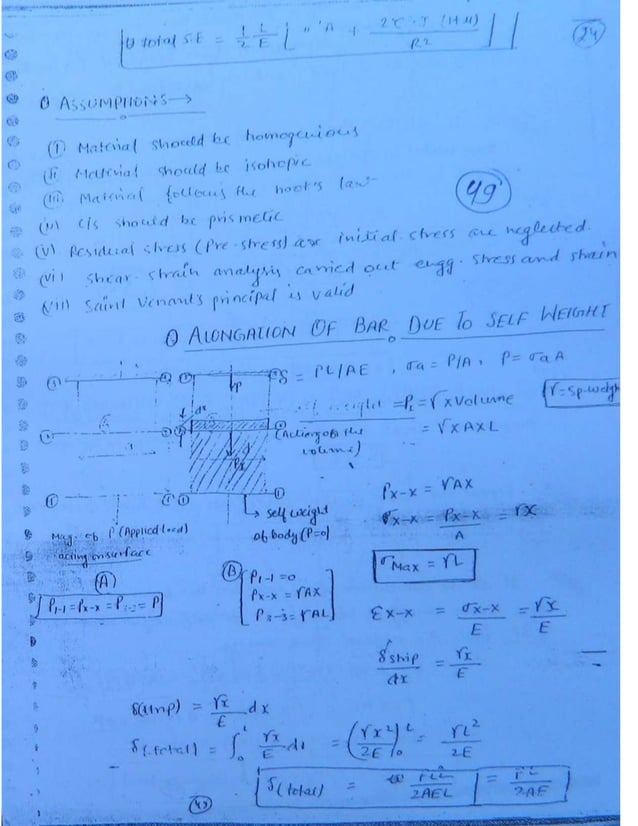 U total S.E = 1/2 L/E [ A + 2C.J (1+μ) / R2 ]
24
① ASSUMPTIONS→
(i) Material should be homogenious
(ii Material should be isotropic
(iii) Material follows the hook's law
49
(iv) c/s should be prismetic
(v) Residual stress (Pre-stress) are initial stress are neglected.
(vi) Shear-strain analysis carried out engg. stress and strain
(VII) Saint Venant's principal is valid
⊙ ALONGATION OF BAR DUE TO SELF WEIGHT
δ = PL/AE , σa = P/A , P = σa A
P
dx
weight = P2 = γ x Volume
γ = Sp. weight
(Acting on the volume)
= γ x A x L
Px
Px-x = γAx
σx-x = Px-x / A = γx
self weight of body (P=0)
Mag. of P (Applied load)
acting on surface
σMax = γL
(A)
P1-1 = Px-x = P2-2 = P
(B)
P1-1 = 0
Px-x = γAx
P3-3 = γAL
εx-x = σx-x / E = γx / E
δstrip / dx = γx / E
δ(strip) = γx / E dx
δ(total) = ∫₀ᴸ γx / E dx = (γx² / 2E)₀ᴸ = γL² / 2E
δ(total) = / 2AEL = PL / 2AE